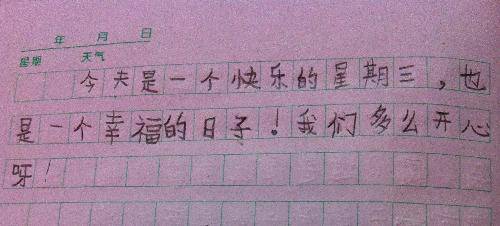 年 月 日
星期 天气
今天是一个快乐的星期三，也
是一个幸福的日子！我们多么开心
呀！